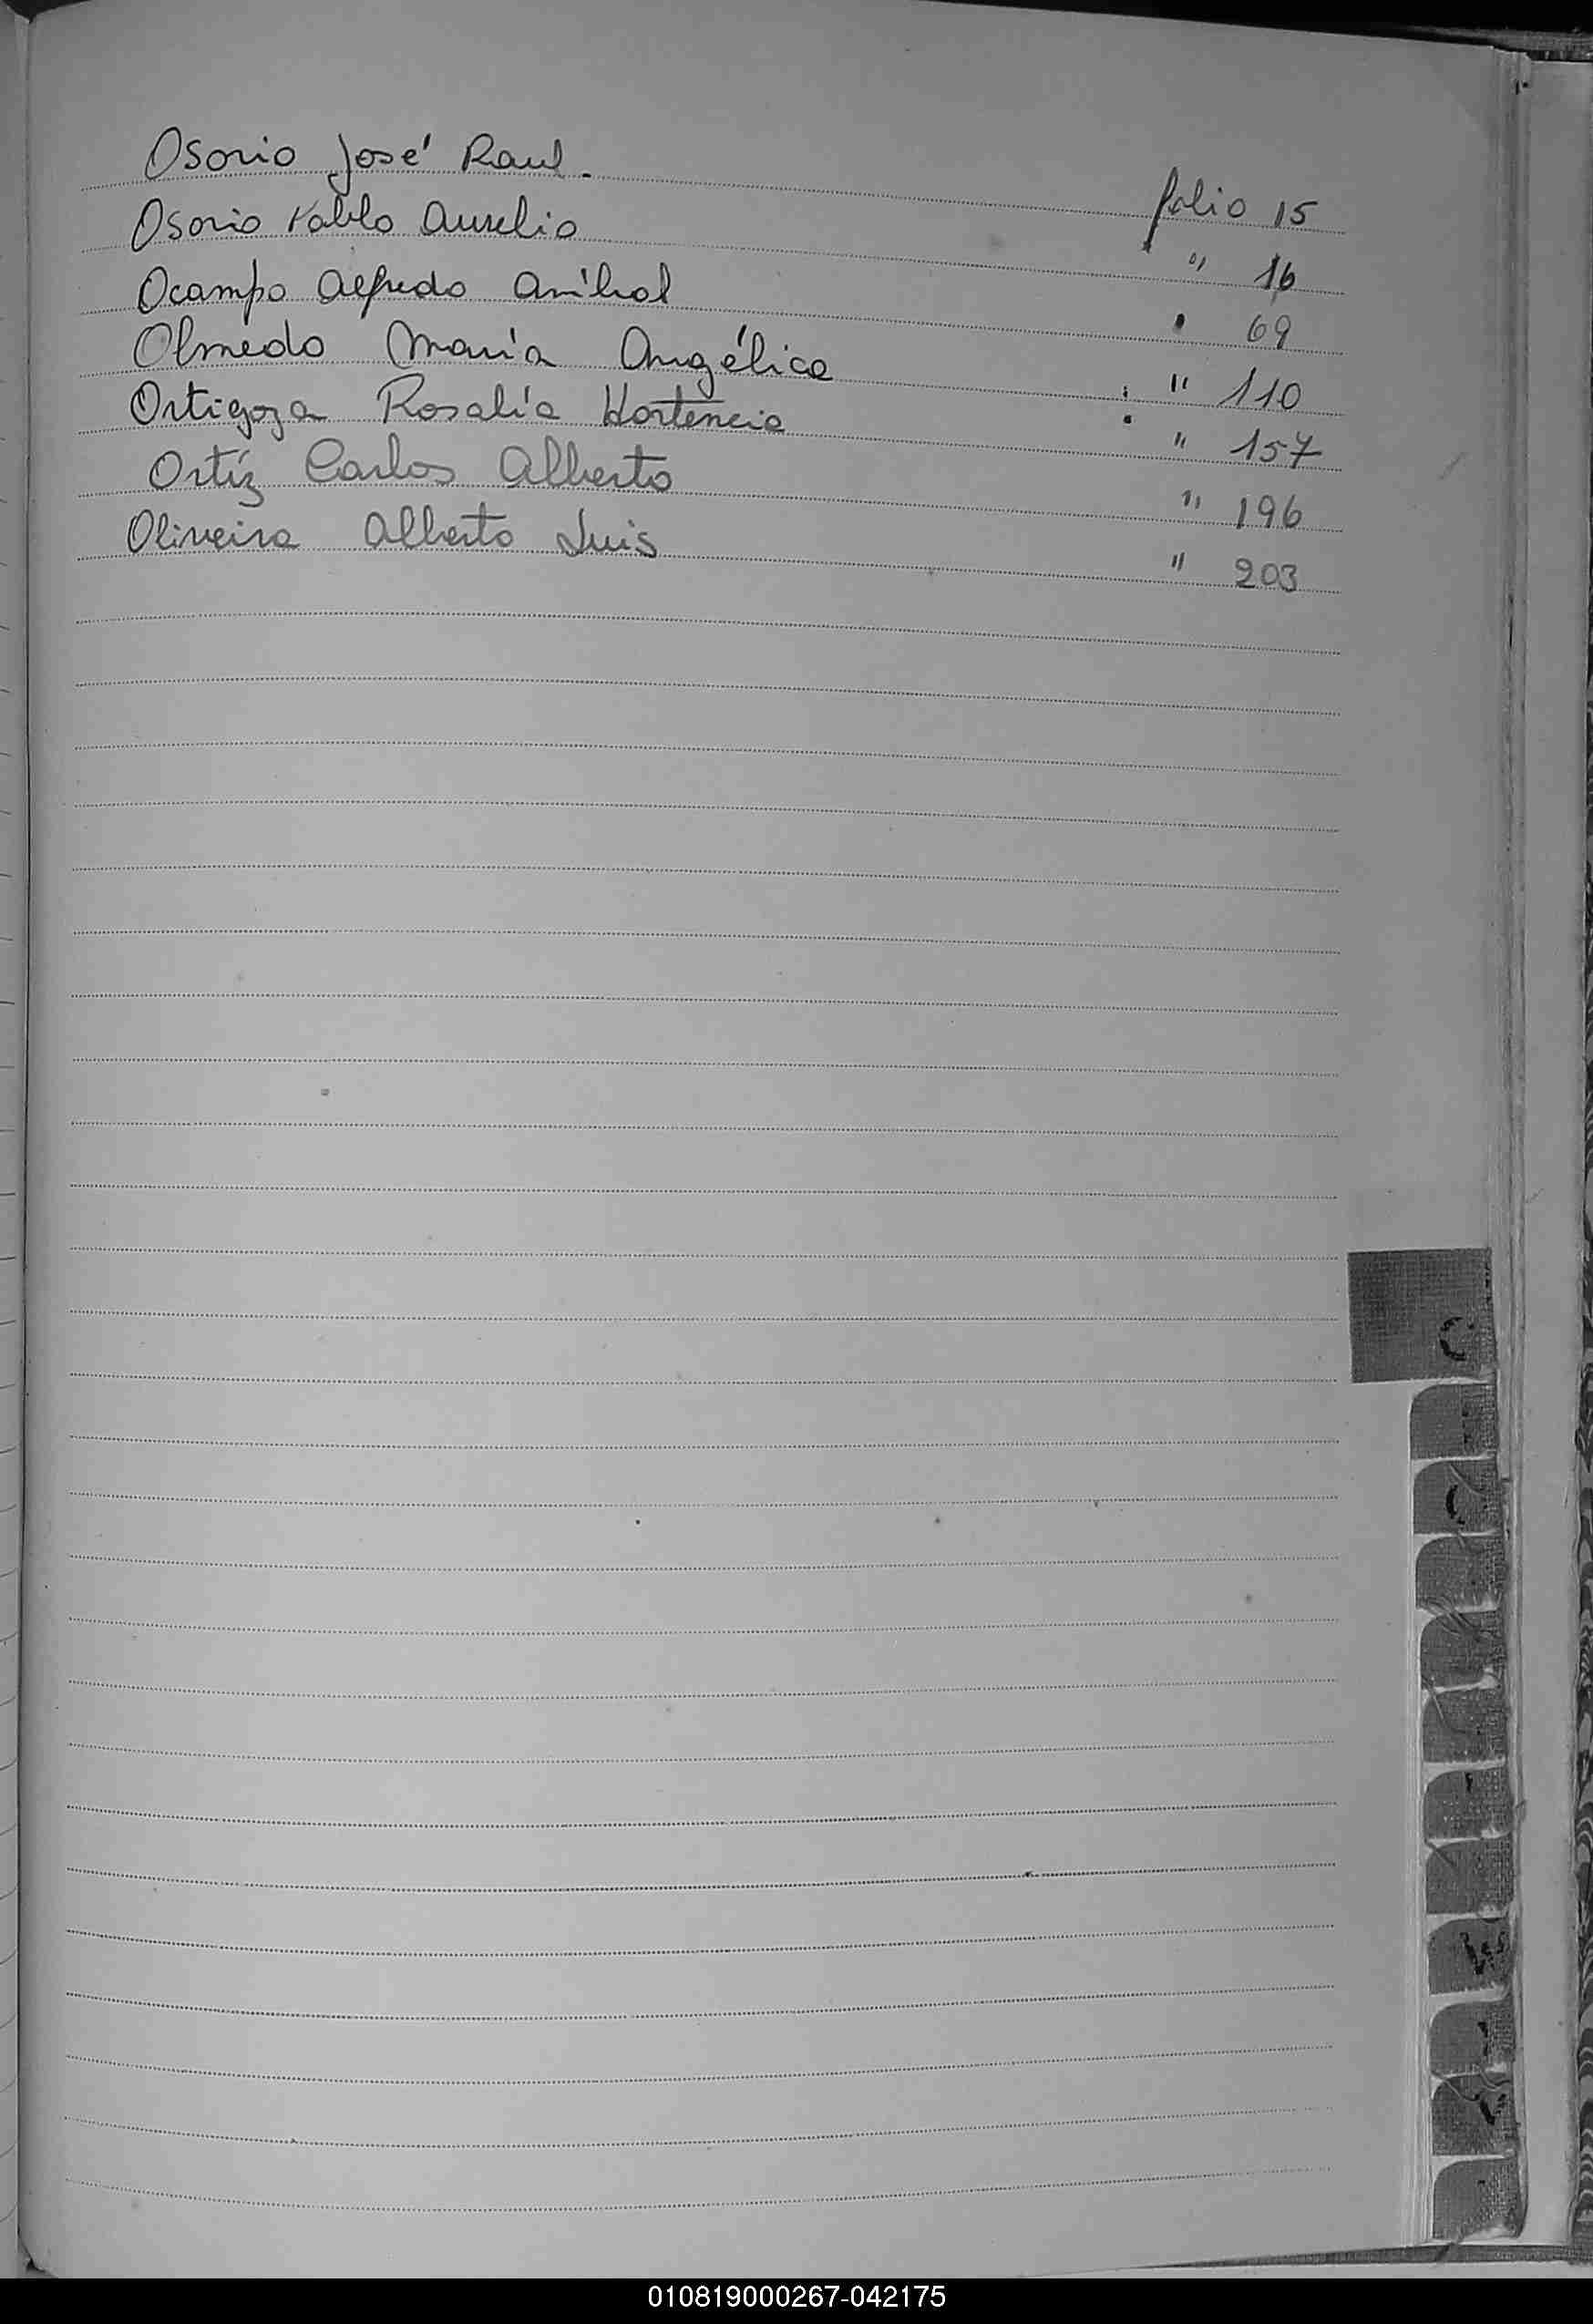 Osorio José Raul. folio 15
Osorio Pablo Aurelio " 16
Ocampo Alfredo Anibal " 69
Olmedo María Angélica : " 110
Ortigoza Rosalía Hortencia . " 157
Ortíz Carlos Alberto " 196
Oliveira Alberto Luis " 203
010819000267-042175